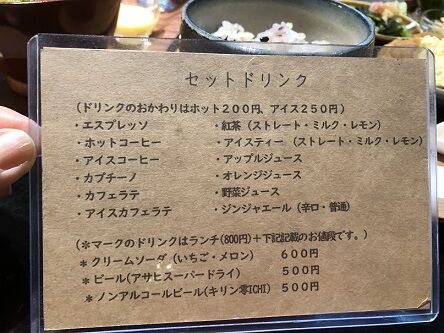 セットドリンク
(ドリンクのおかわりはホット200円、アイス250円)
・エスプレッソ ・紅茶(ストレート・ミルク・レモン)
・ホットコーヒー ・アイスティー(ストレート・ミルク・レモン)
・アイスコーヒー ・アップルジュース
・カプチーノ ・オレンジジュース
・カフェラテ ・野菜ジュース
・アイスカフェラテ ・ジンジャエール(辛口・普通)
(*マークのドリンクはランチ(800円)+下記記載のお値段です。)
*クリームソーダ(いちご・メロン) 600円
*ビール(アサヒスーパードライ) 500円
*ノンアルコールビール(キリン零ICHI) 500円